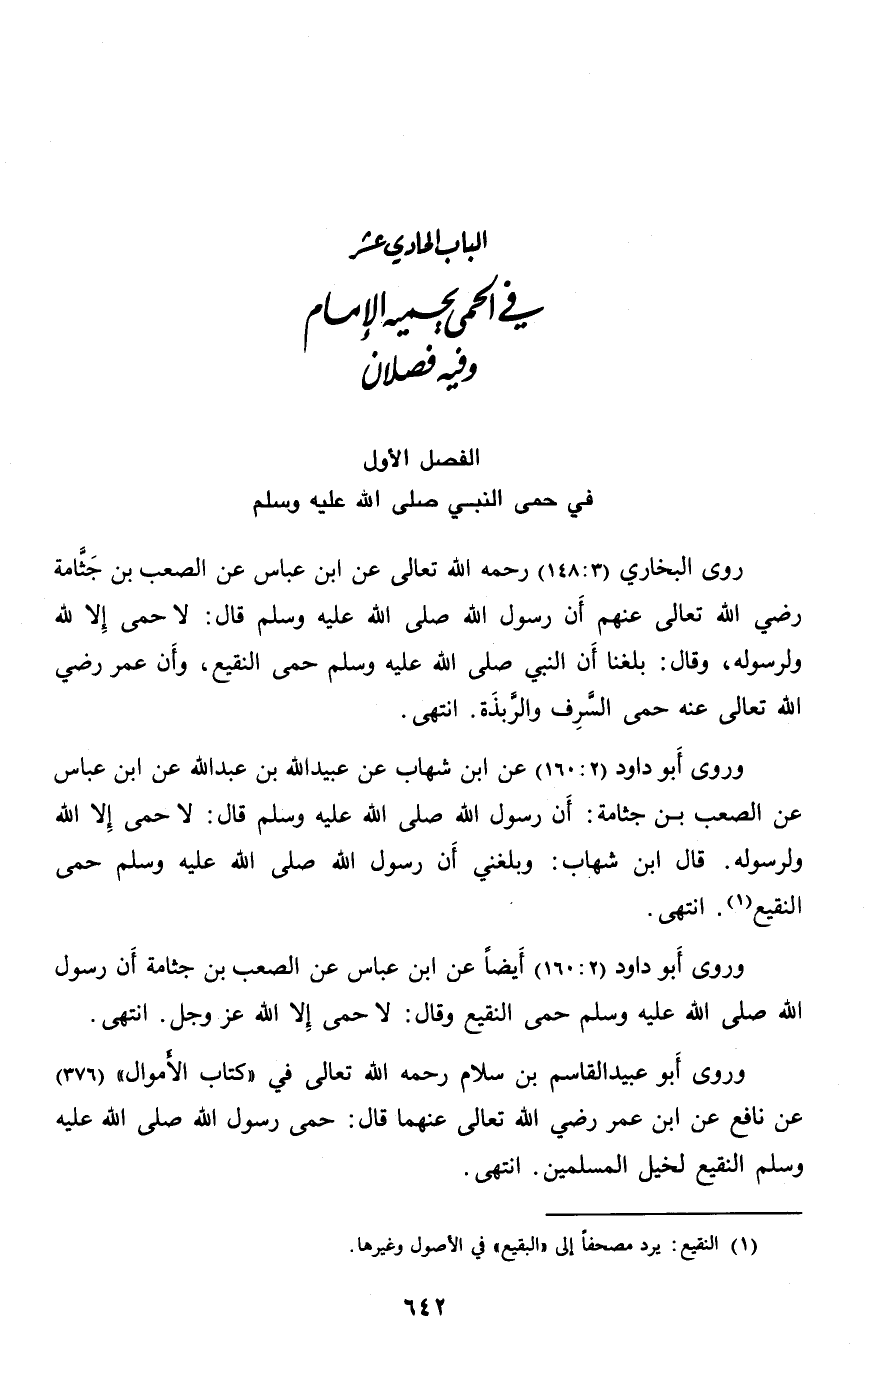 الباب الحادي عشر
في الحمى يحميه الإمام
وفيه فصلان
الفصل الأول
في حمى النبي صلى الله عليه وسلم
روى البخاري (٣:١٤٨) رحمه الله تعالى عن ابن عباس عن الصعب بن جَثَّامة
رضي الله تعالى عنهم أَن رسول الله صلى الله عليه وسلم قال: لا حمى إِلا لله
ولرسوله، وقال: بلغنا أَن النبي صلى الله عليه وسلم حمى النقيع، وأَن عمر رضي
الله تعالى عنه حمى السَّرِف والرَّبذَة. انتهى.
وروى أَبو داود (٢:١٦٠) عن ابن شهاب عن عبيدالله بن عبدالله عن ابن عباس
عن الصعب بن جثامة: أَن رسول الله صلى الله عليه وسلم قال: لا حمى إِلا الله
ولرسوله. قال ابن شهاب: وبلغني أَن رسول الله صلى الله عليه وسلم حمى
النقيع(١). انتهى.
وروى أَبو داود (٢:١٦٠) أَيضاً عن ابن عباس عن الصعب بن جثامة أَن رسول
الله صلى الله عليه وسلم حمى النقيع وقال: لا حمى إِلا الله عز وجل. انتهى.
وروى أَبو عبيدالقاسم بن سلام رحمه الله تعالى في «كتاب الأَموال» (٣٧٦)
عن نافع عن ابن عمر رضي الله تعالى عنهما قال: حمى رسول الله صلى الله عليه
وسلم النقيع لخيل المسلمين. انتهى.
(١) النقيع: يرد مصحفاً إلى «البقيع» في الأصول وغيرها.
٦٤٢